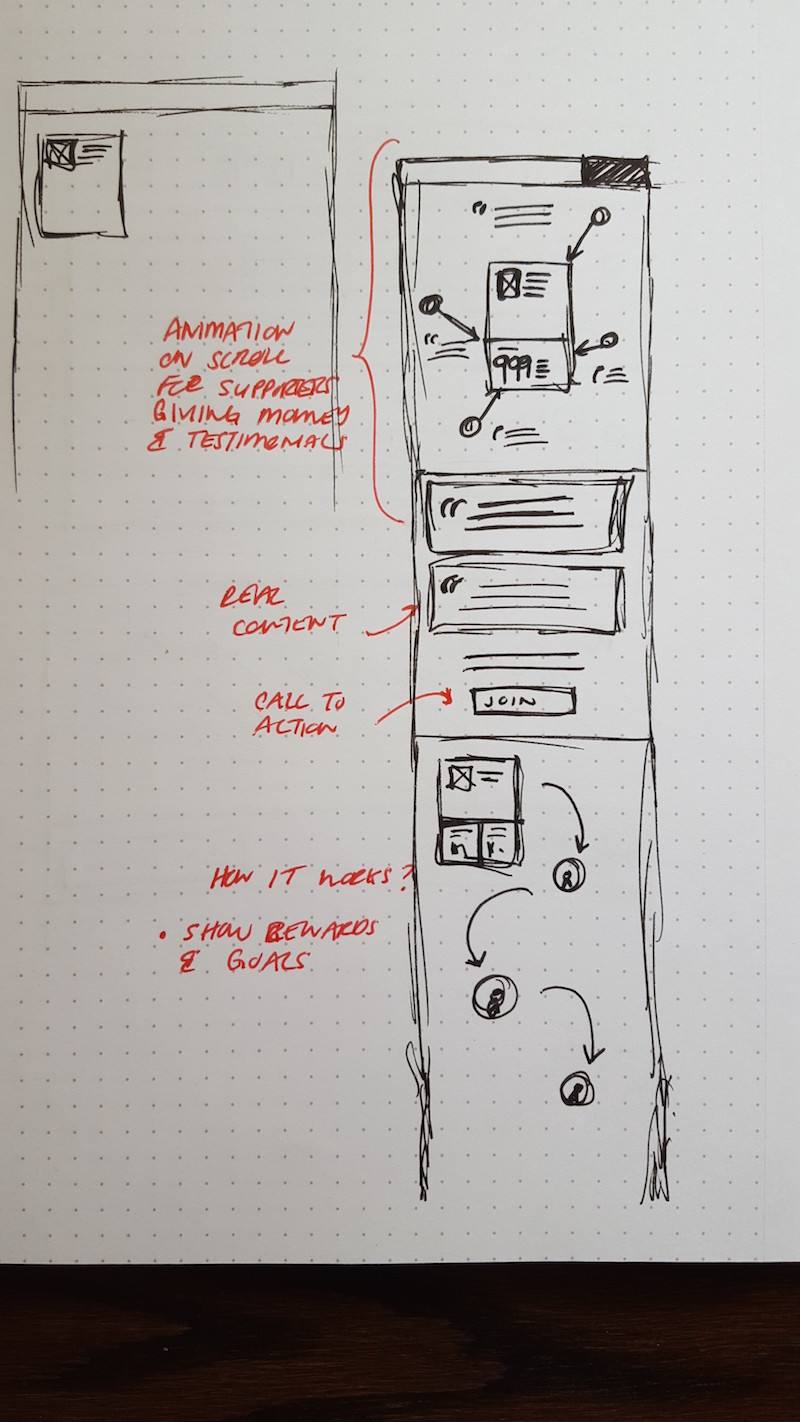 ANIMATION
ON SCROLL
FOR SUPPORTERS
GIVING MONEY
& TESTIMONIALS
999
REAL
CONTENT
CALL TO
ACTION
JOIN
HOW IT WORKS?
• SHOW REWARDS
& GOALS